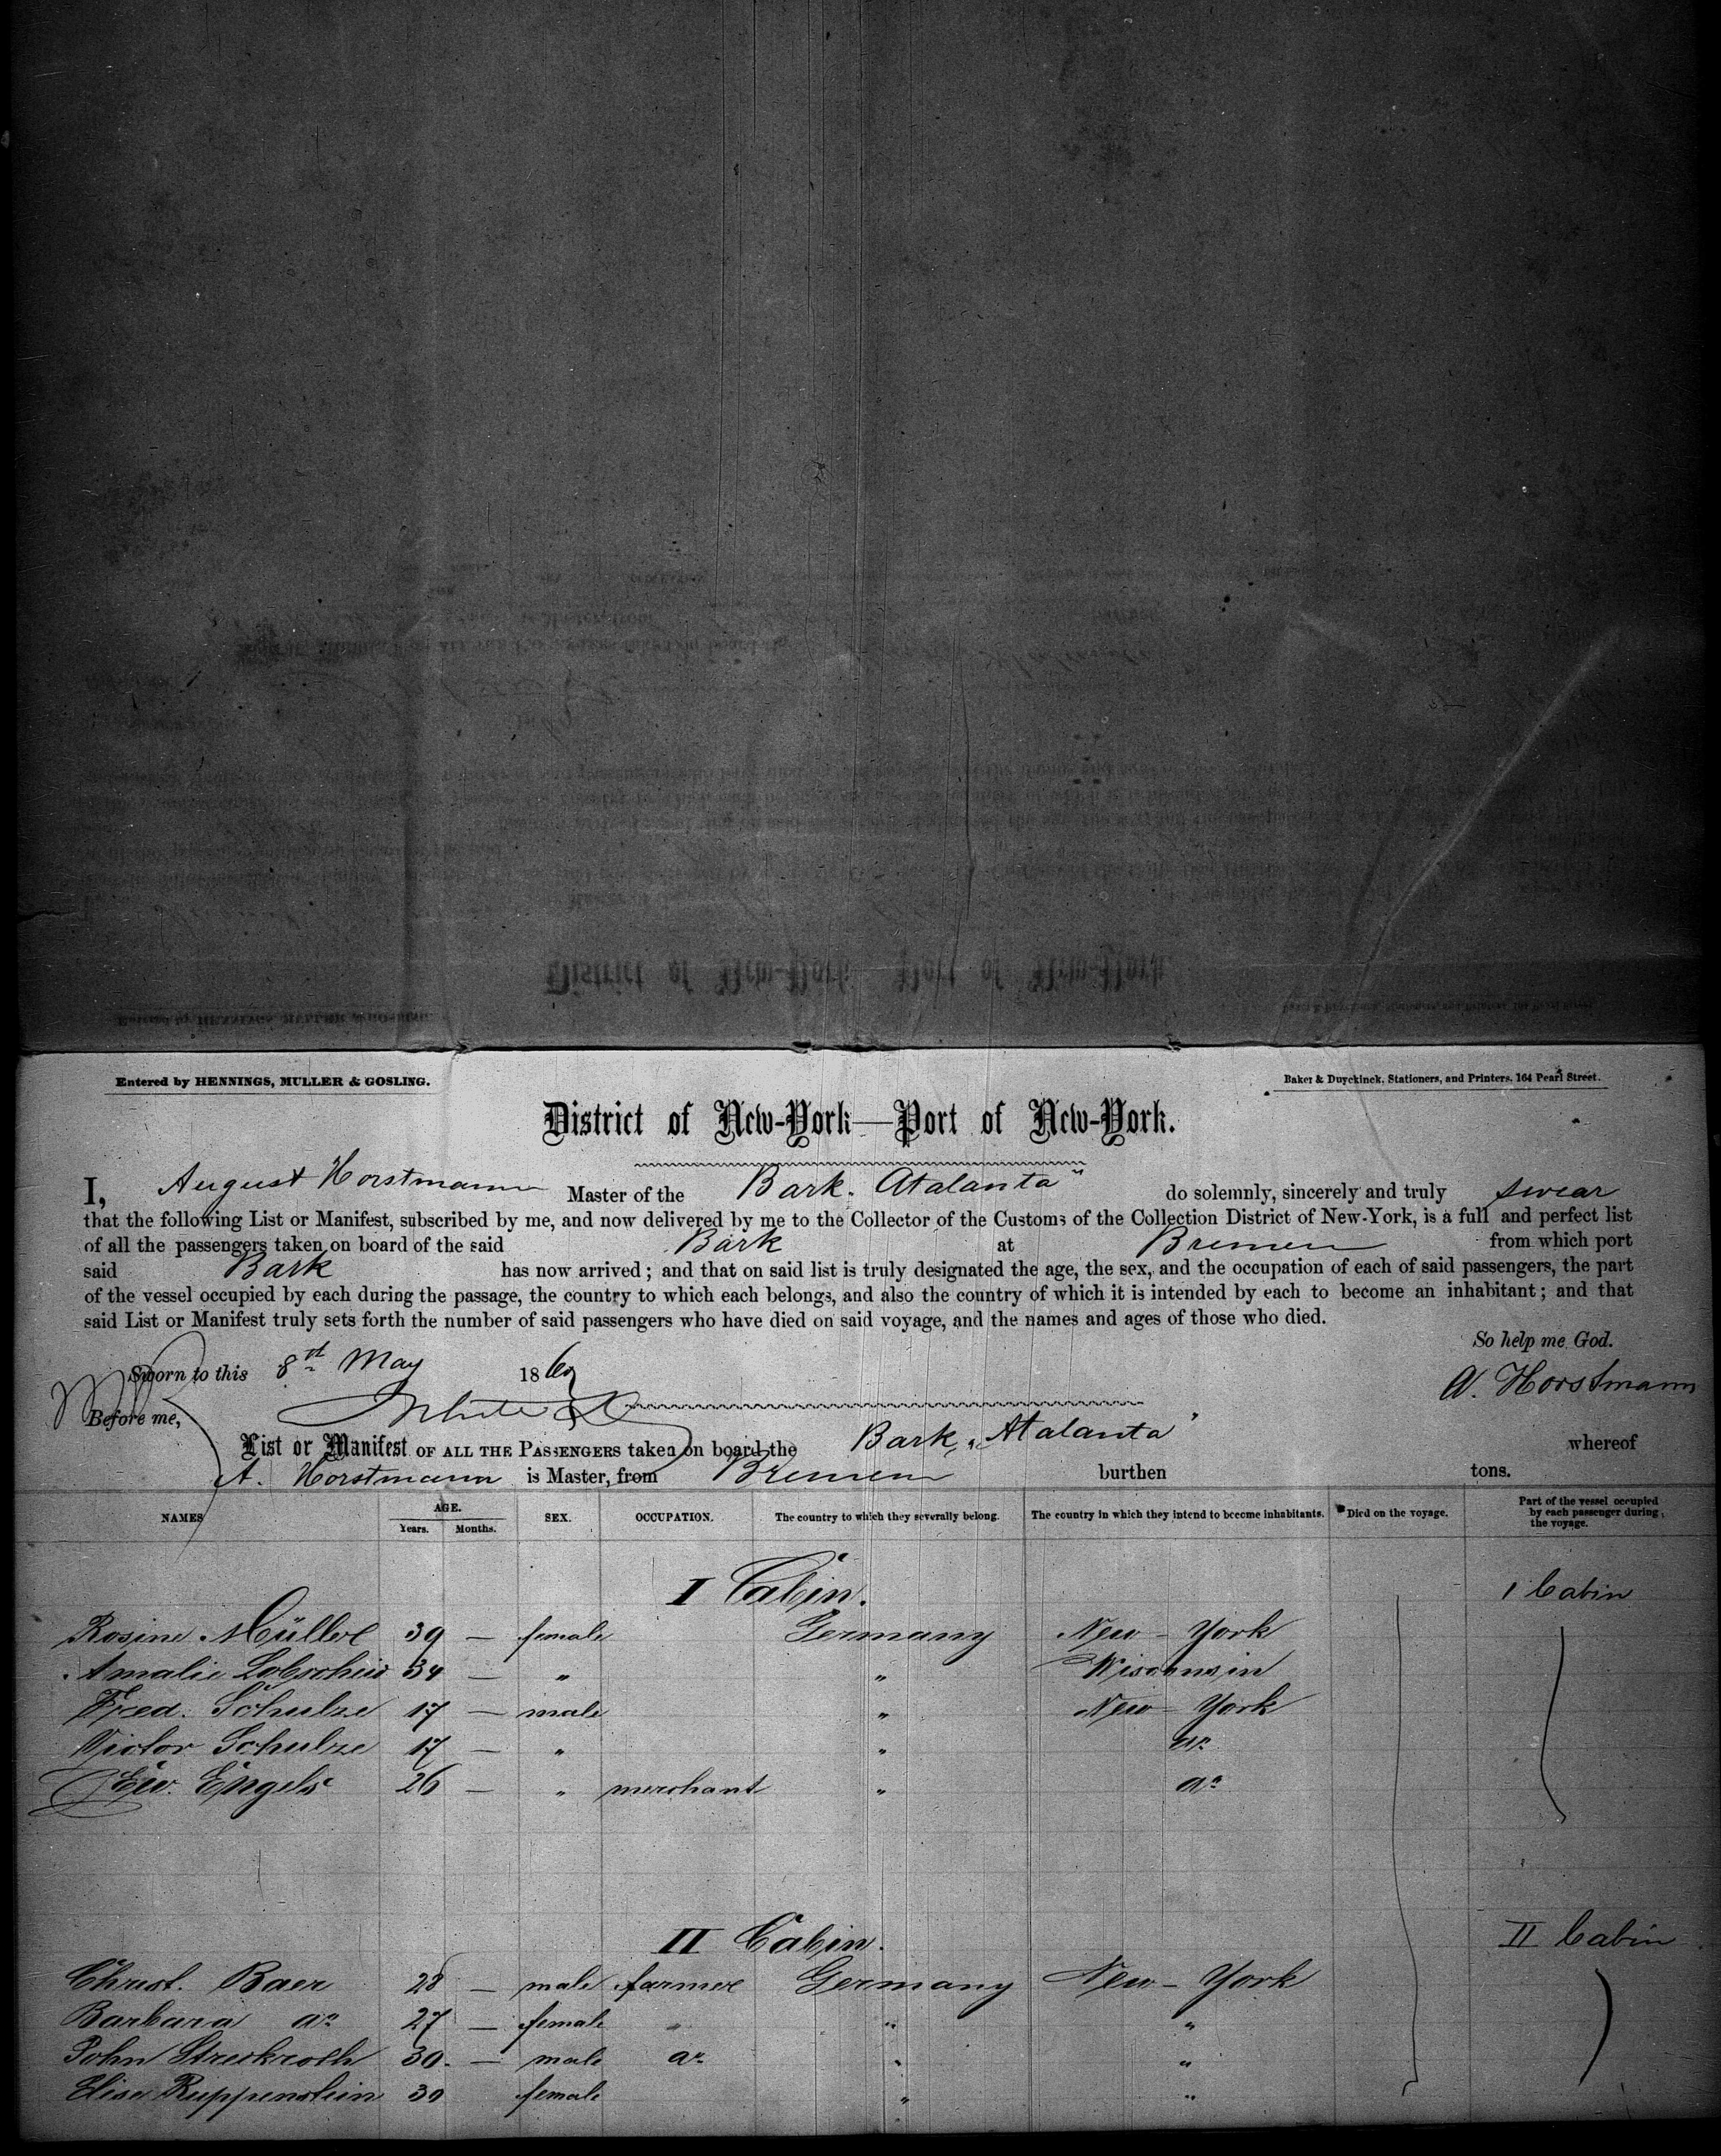 Entered by HENNINGS, MULLER & GOSLING.
Baker & Duyckinck, Stationers, and Printers, 164 Pearl Street.
District of New-York—Port of New-York.
I, August Horstmann Master of the Bark „Atalanta“ do solemnly, sincerely and truly swear
that the following List or Manifest, subscribed by me, and now delivered by me to the Collector of the Customs of the Collection District of New-York, is a full and perfect list
of all the passengers taken on board of the said Bark at Bremen from which port
said Bark has now arrived; and that on said list is truly designated the age, the sex, and the occupation of each of said passengers, the part
of the vessel occupied by each during the passage, the country to which each belongs, and also the country of which it is intended by each to become an inhabitant; and that
said List or Manifest truly sets forth the number of said passengers who have died on said voyage, and the names and ages of those who died.
So help me God.
Sworn to this 8st May 186
A. Horstmann
Before me,
List or Manifest OF ALL THE PASSENGERS taken on board the Bark „Atalanta“ whereof
A. Horstmann is Master, from Bremen burthen tons.
NAMES AGE. Years. Months. SEX. OCCUPATION. The country to which they severally belong. The country in which they intend to become inhabitants. Died on the voyage. Part of the vessel occupied by each passenger during the voyage.
I Cabin. I Cabin
Rosine Müller 39 — female Germany New-York
Amalie 34 — " " Wisconsin
Fred. Schulze 17 — male " New-York
Victor Schulze 17 — " " do
Edw. Engels 26 — " merchant " do
II Cabin. II Cabin
Christ. Baer 28 — male farmer Germany New-York
Barbara do 27 — female " " "
John 30 — male do " "
Elise Ruppenstein 30 female " "